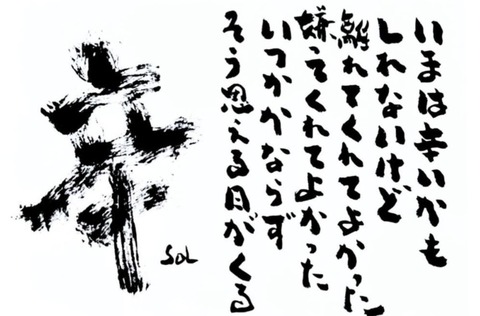 いまは辛いかも
しれないけど
離れてくれてよかった
嫌ってくれてよかった
いつかかならず
そう思える日がくる
辛
SOL